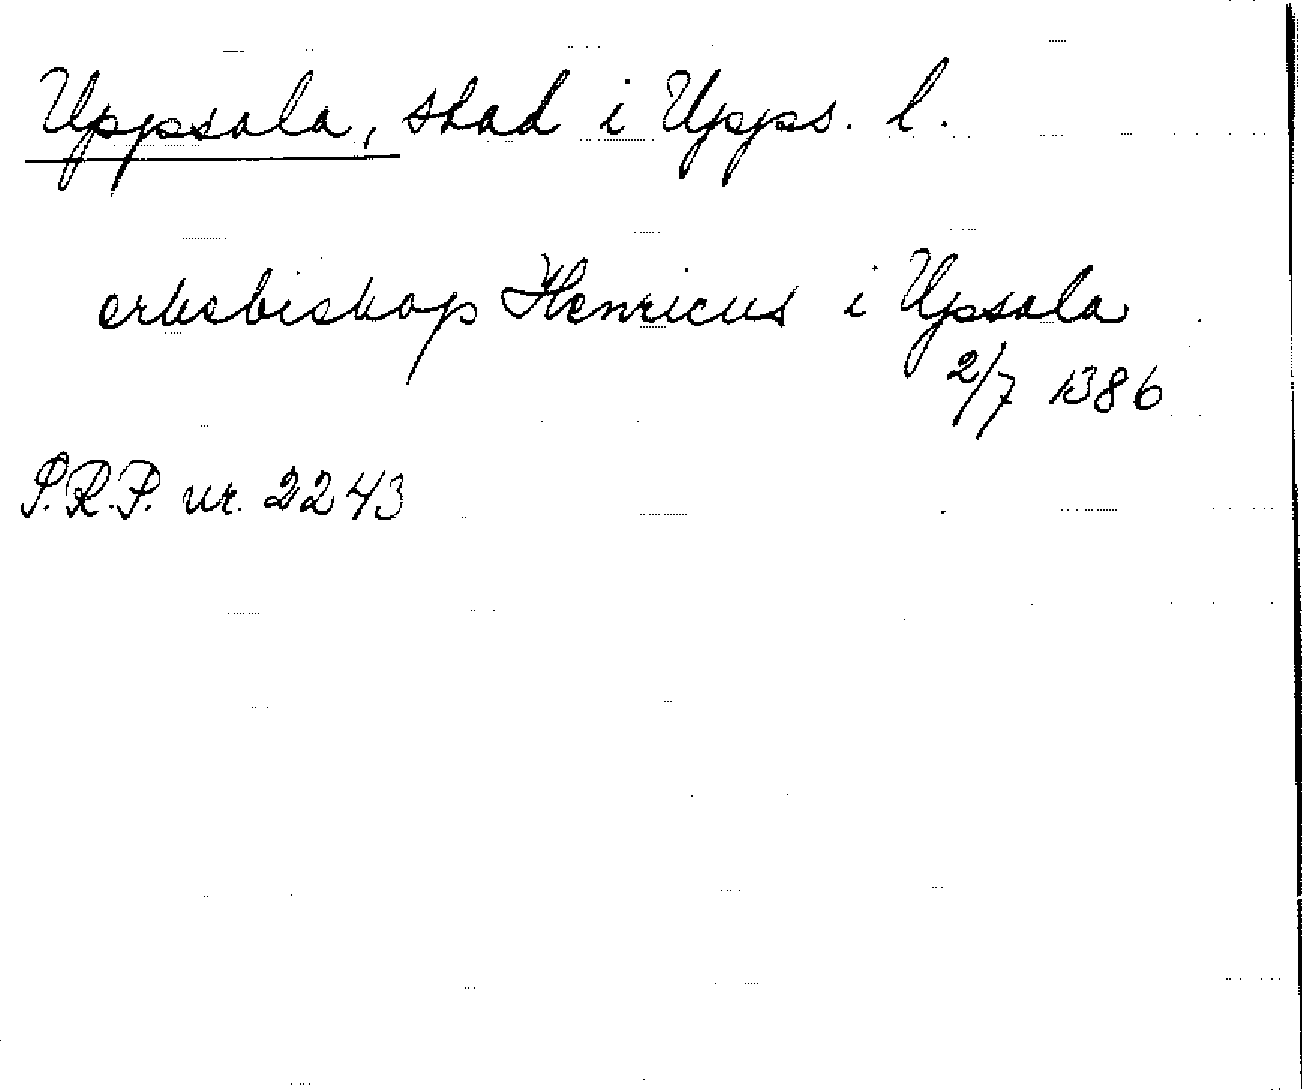 Uppsala, stad i Upps. l.
erkebiskop Henricus i Upsala
2/7 1386
S.R.P. nr. 2243